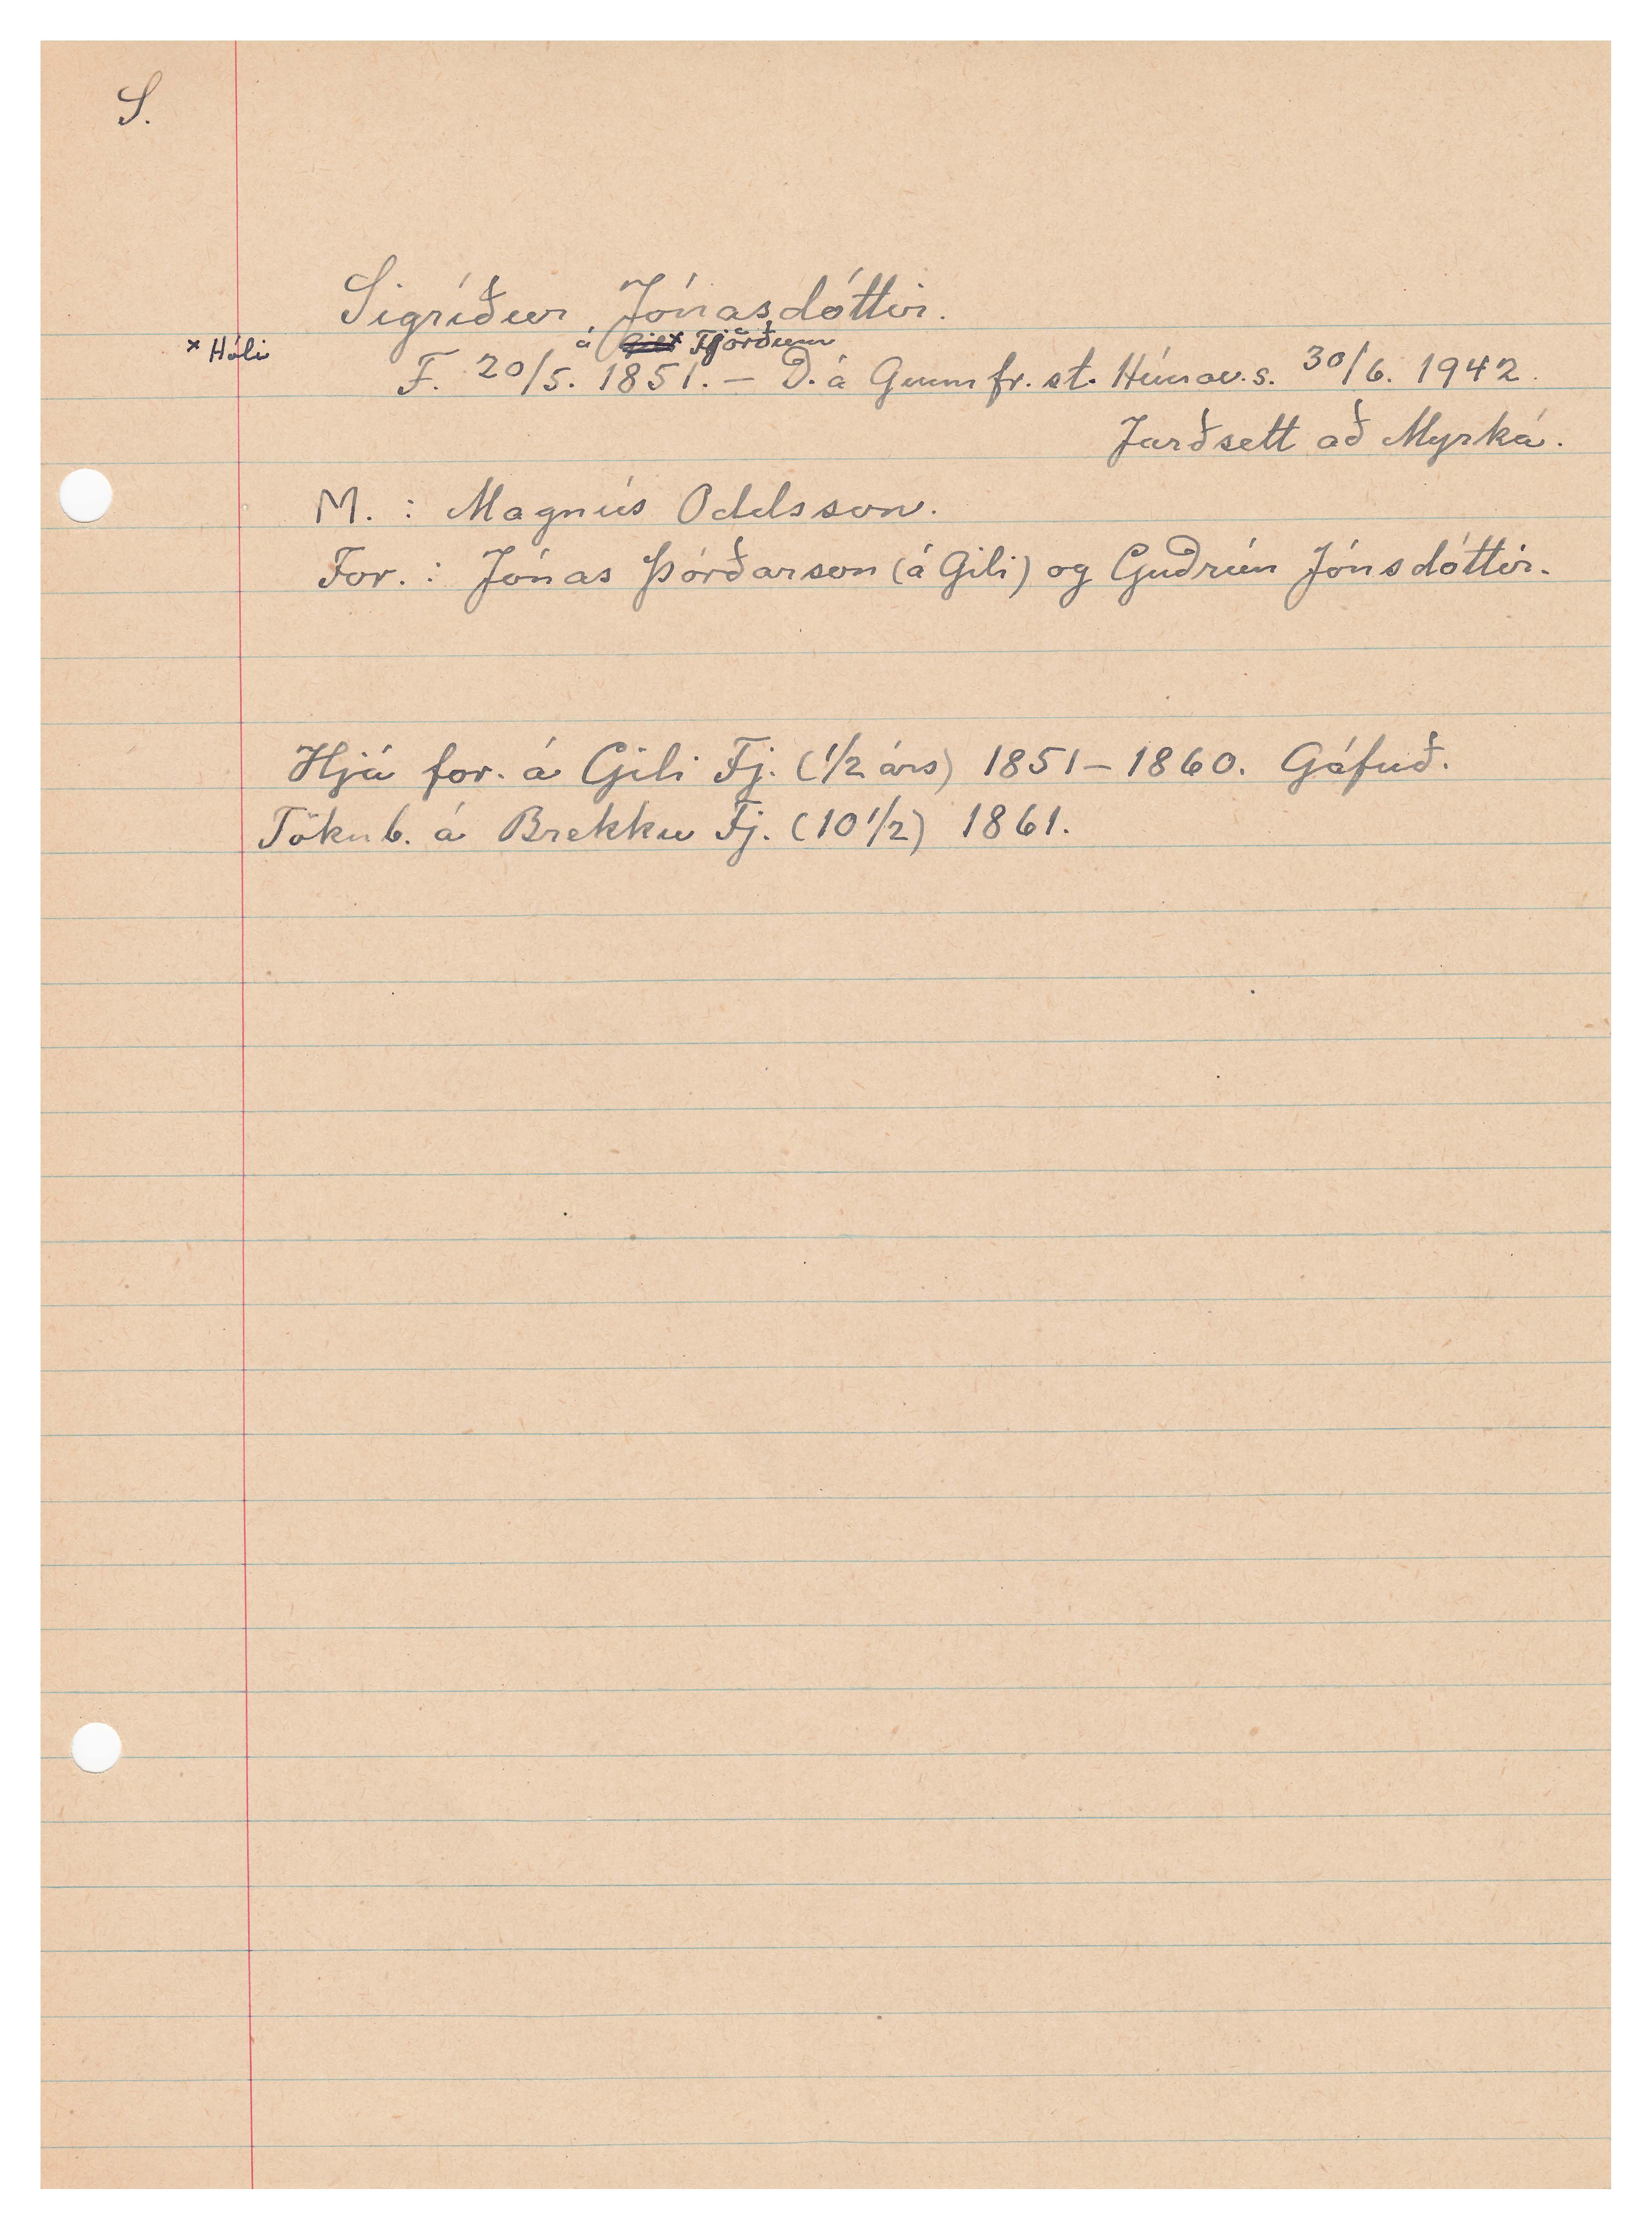 S.
Sigríður Jónasdóttir.
á Gili x Fjörðum
x Hóli
F. 20/5. 1851. – D. á Gunnfr.st. Húnav.s. 30/6. 1942.
Jarðsett að Myrká.
M. : Magnús Oddsson.
For. : Jónas Þórðarson (á Gili) og Guðrún Jónsdóttir.
Hjá for. á Gili Fj. (1/2 árs) 1851–1860. Gáfuð.
Tökub. á Brekku Fj. (10 1/2) 1861.